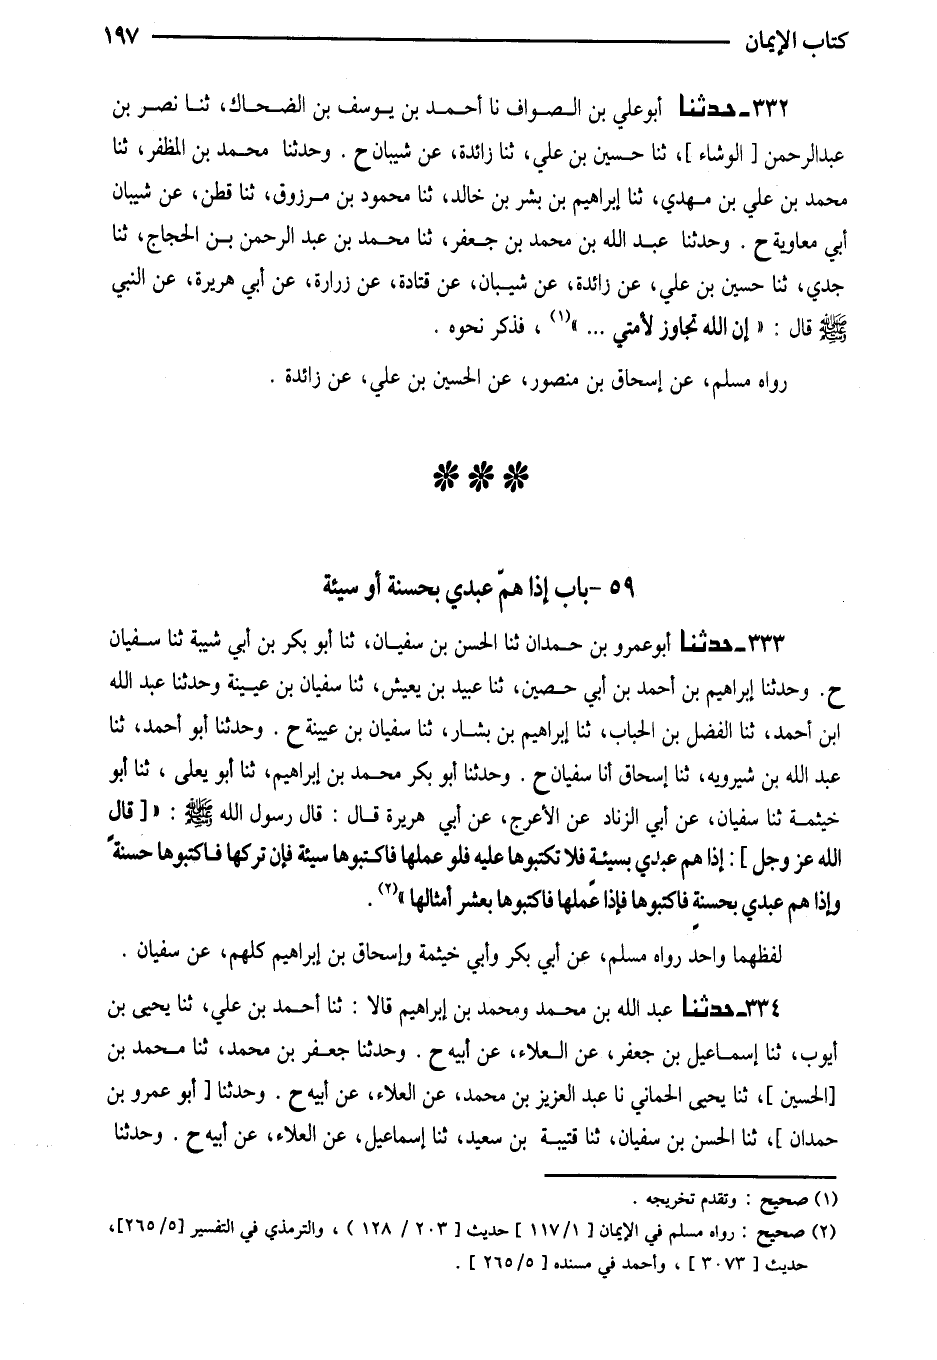 كتاب الإيمان ١٩٧
٣٣٢ـ حدثنا أبوعلي بن الصواف نا أحمد بن يوسف بن الضحاك، ثنا نصر بن
عبدالرحمن [ الوشاء ]، ثنا حسين بن علي، ثنا زائدة، عن شيبان ح . وحدثنا محمد بن المظفر، ثنا
محمد بن علي بن مهدي، ثنا إبراهيم بن بشر بن خالد، ثنا محمود بن مرزوق، ثنا قطن، عن شيبان
أبي معاوية ح . وحدثنا عبد الله بن محمد بن جعفر، ثنا محمد بن عبد الرحمن بن الحجاج، ثنا
جدي، ثنا حسين بن علي، عن زائدة، عن شيبان، عن قتادة، عن زرارة، عن أبي هريرة، عن النبي
ﷺ قال : « إن الله تجاوز لأمتي ... »(١) ، فذكر نحوه .
رواه مسلم، عن إسحاق بن منصور، عن الحسين بن علي، عن زائدة .
٥٩ -باب إذا همّ عبدي بحسنة أو سيئة
٣٣٣ـ حدثنا أبوعمرو بن حمدان ثنا الحسن بن سفيان، ثنا أبو بكر بن أبي شيبة ثنا سفيان
ح. وحدثنا إبراهيم بن أحمد بن أبي حصين، ثنا عبيد بن يعيش، ثنا سفيان بن عيينة وحدثنا عبد الله
ابن أحمد، ثنا الفضل بن الحباب، ثنا إبراهيم بن بشار، ثنا سفيان بن عيينة ح . وحدثنا أبو أحمد، ثنا
عبد الله بن شيرويه، ثنا إسحاق أنا سفيان ح . وحدثنا أبو بكر محمد بن إبراهيم، ثنا أبو يعلى ، ثنا أبو
خيثمة ثنا سفيان، عن أبي الزناد عن الأعرج، عن أبي هريرة قال : قال رسول الله ﷺ : « [ قال
الله عز وجل ] : إذا هم عبدي بسيئة فلا تكتبوها عليه فلو عملها فاكتبوها سيئة فإن تركها فاكتبوها حسنةً
وإذا هم عبدي بحسنةٍ فاكتبوها فإذا عمِّلها فاكتبوها بعشر أمثالها »(٢) .
لفظهما واحد رواه مسلم، عن أبي بكر وأبي خيثمة وإسحاق بن إبراهيم كلهم، عن سفيان .
٣٣٤ـ حدثنا عبد الله بن محمد ومحمد بن إبراهيم قالا : ثنا أحمد بن علي، ثنا يحيى بن
أيوب، ثنا إسماعيل بن جعفر، عن العلاء، عن أبيه ح . وحدثنا جعفر بن محمد، ثنا محمد بن
[الحسين ]، ثنا يحيى الحماني نا عبد العزيز بن محمد، عن العلاء، عن أبيه ح . وحدثنا [ أبو عمرو بن
حمدان ]، ثنا الحسن بن سفيان، ثنا قتيبة بن سعيد، ثنا إسماعيل، عن العلاء، عن أبيه ح . وحدثنا
(١) صحيح : وتقدم تخريجه .
(٢) صحيح : رواه مسلم في الإيمان [ ١١٧/١ ] حديث [ ٢٠٣ / ١٢٨ ) ، والترمذي في التفسير [٢٦٥/٥]،
حديث [ ٣٠٧٣ ] ، وأحمد في مسنده [ ٢٦٥/٥ ] .